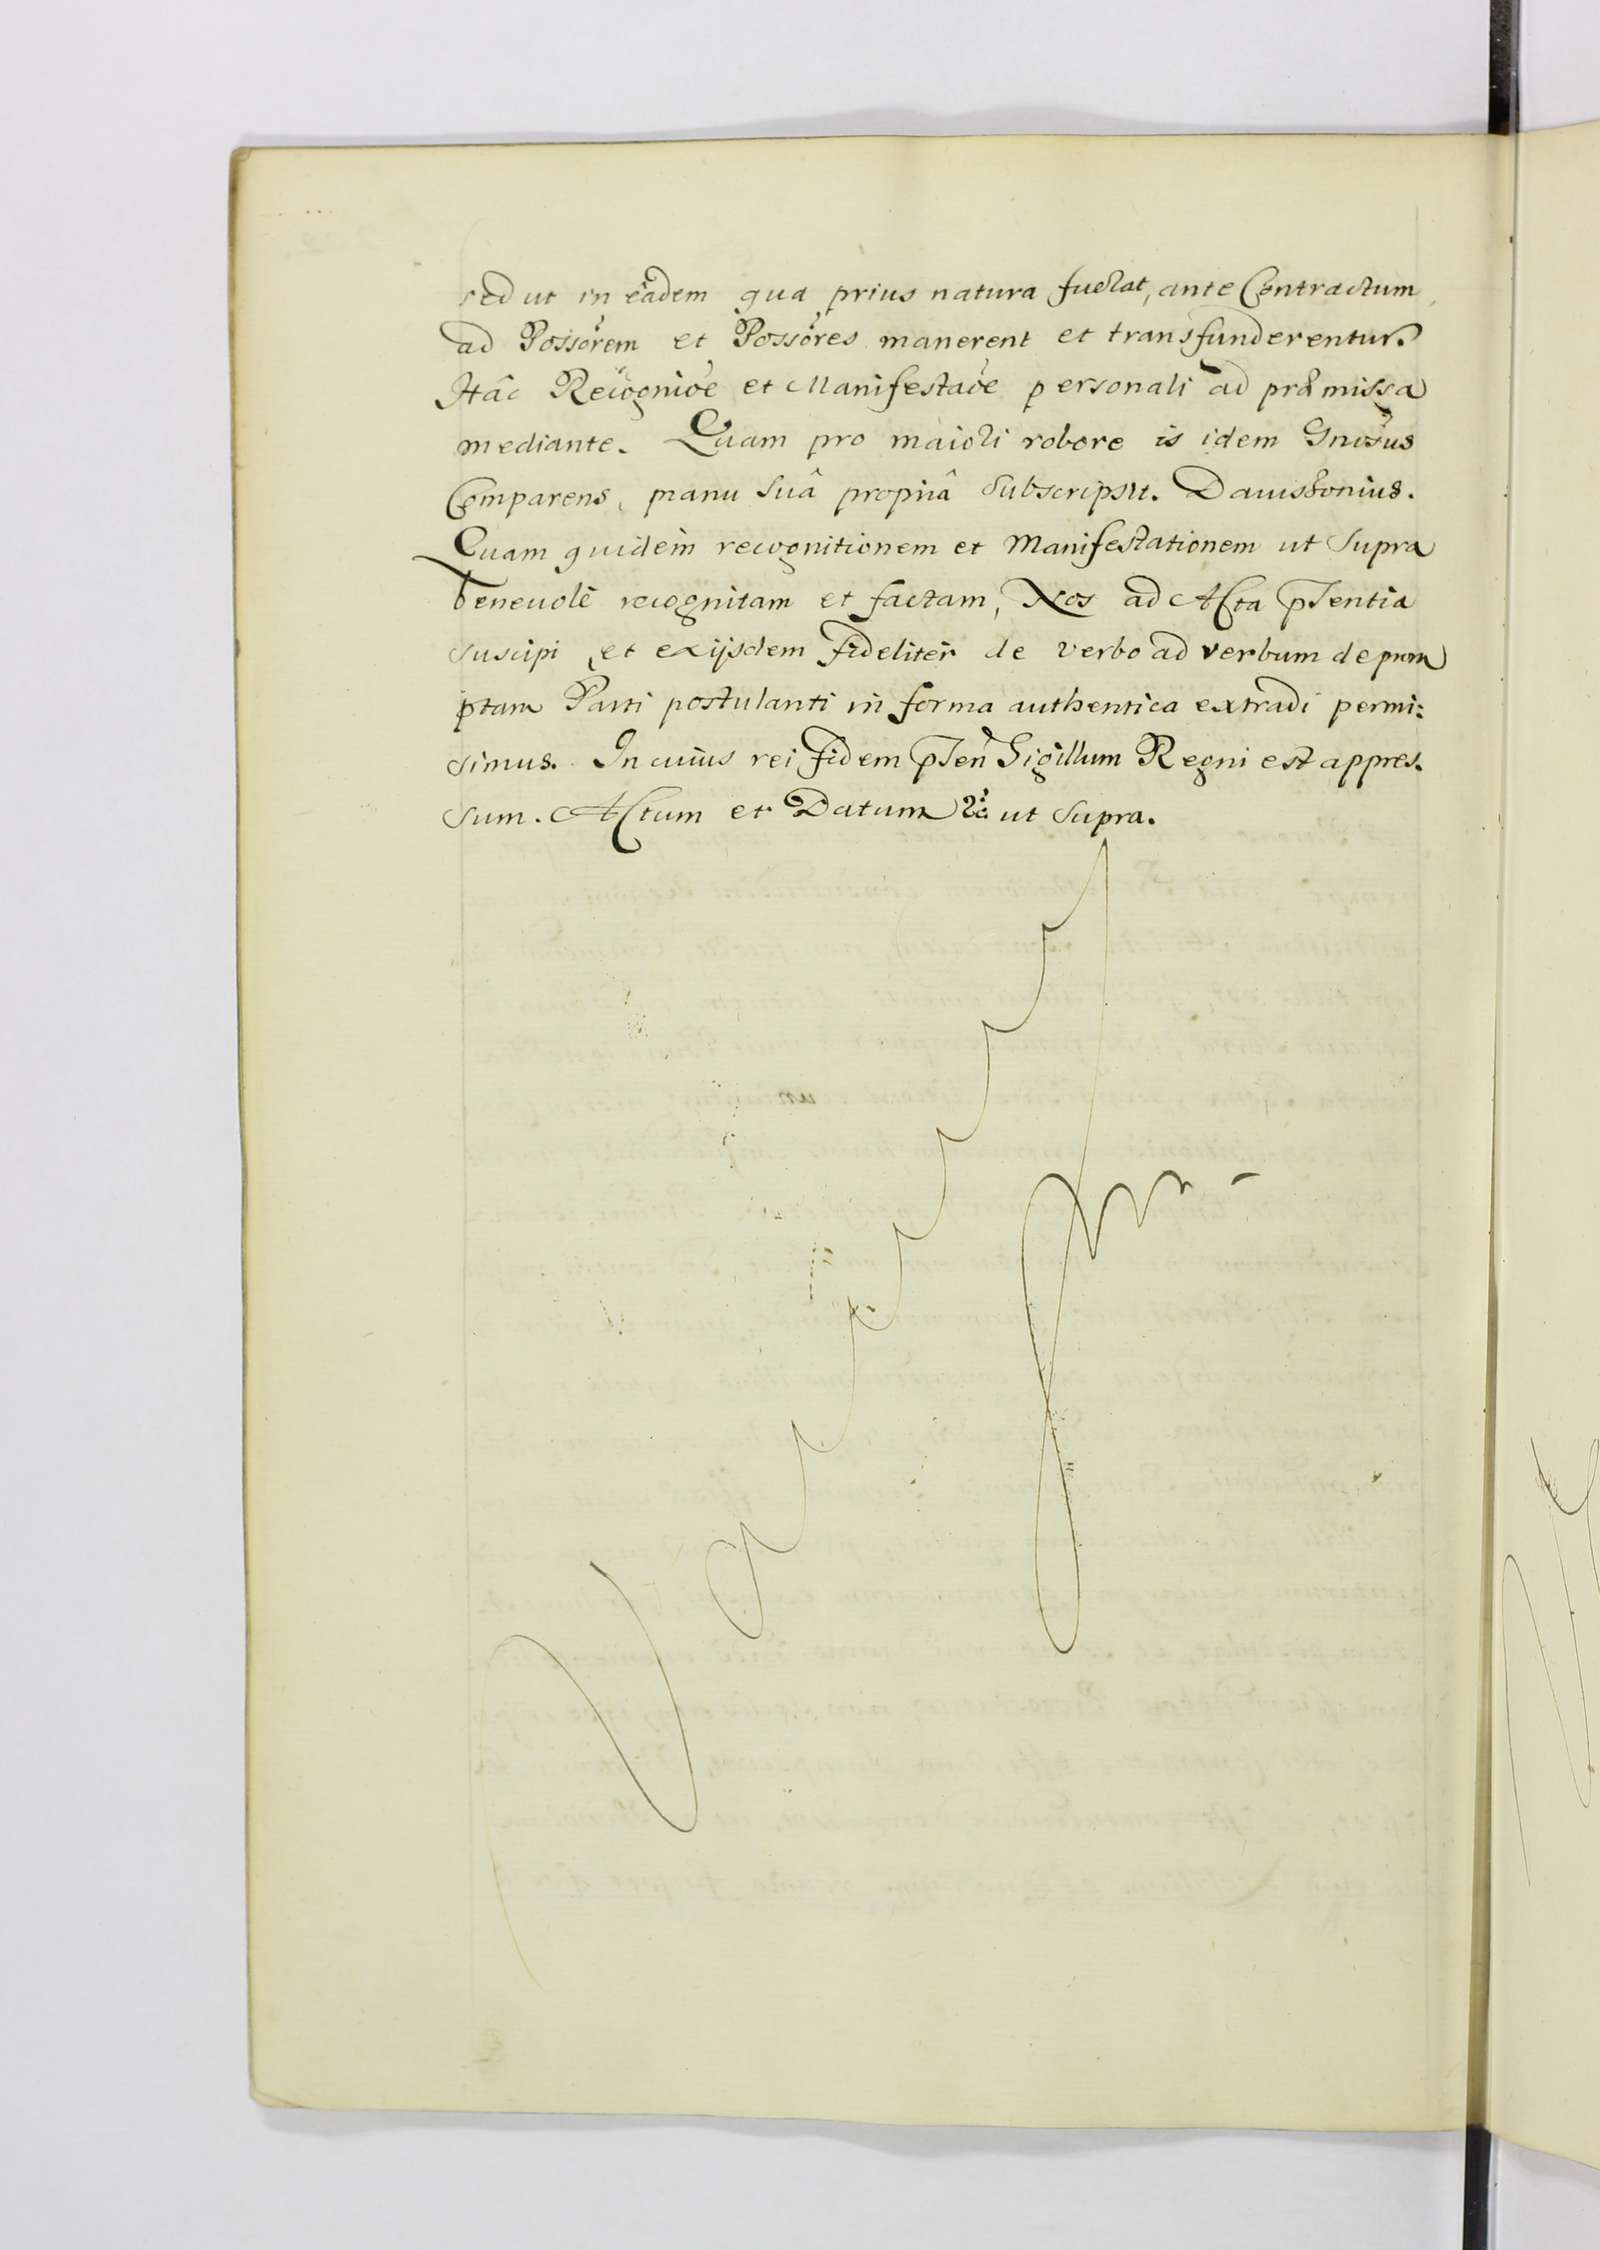 sed ut in eadem qua prius natura fuerat, ante Contractum
ad Possorem et Possores manerent et transfunderentur.
Hâc Recognioe et Manifestaoe personali ad præmissa
mediante. Quam pro maiori robore is idem Gnosus
Comparens, manu Suâ propriâ Subscripsit. Davissonius.
Quam quidem recognitionem et Manifestationem ut Supra
benevolè recognitam et factam, Nos ad Acta pntia
suscipi, et exijsdem fideliter de verbo ad verbum deprom
ptam Parti postulanti in forma authentica extradi permi:
simus. In cuius rei fidem pñ Sigillum Regni est appres.
sum. Actum et Datum &c: ut Supra.
Vacat